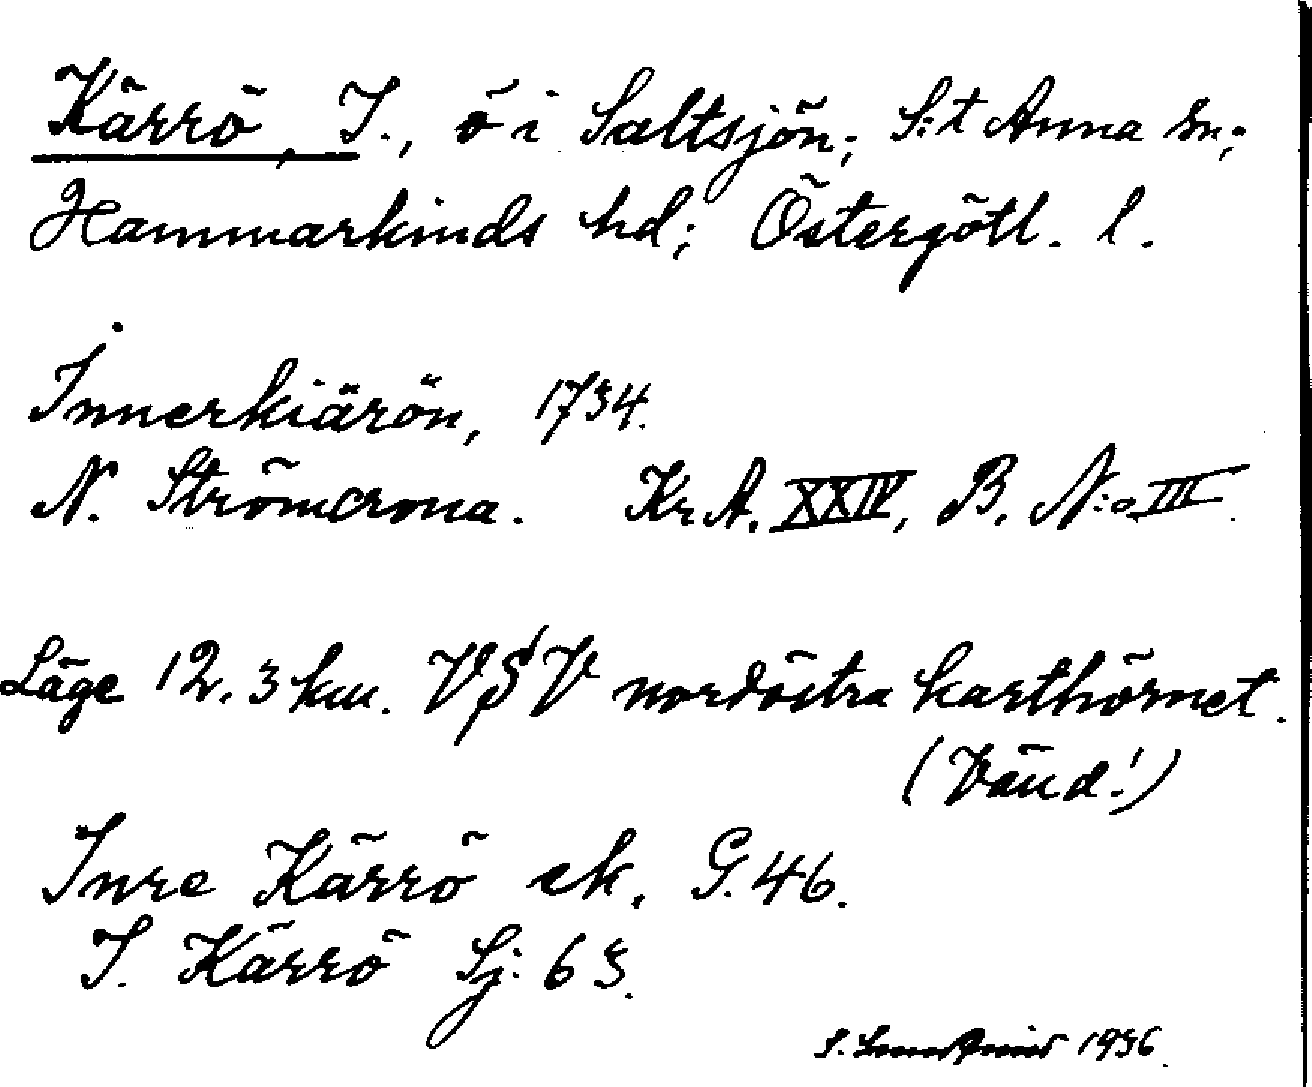 Kärrö, I., ö i Saltsjön; S:t Anna sn;
Hammarkinds hd; Östergötl. l.
Innerkiärön, 1734.
N. Strömcrona. Kr. A. XXIV, B. N:o III.
Läge 12.3 km. VSV nordöstra karthörnet.
(Vänd!)
Inre Kärrö ek. G. 46.
I. Kärrö Sj: 63.
S. 1936.